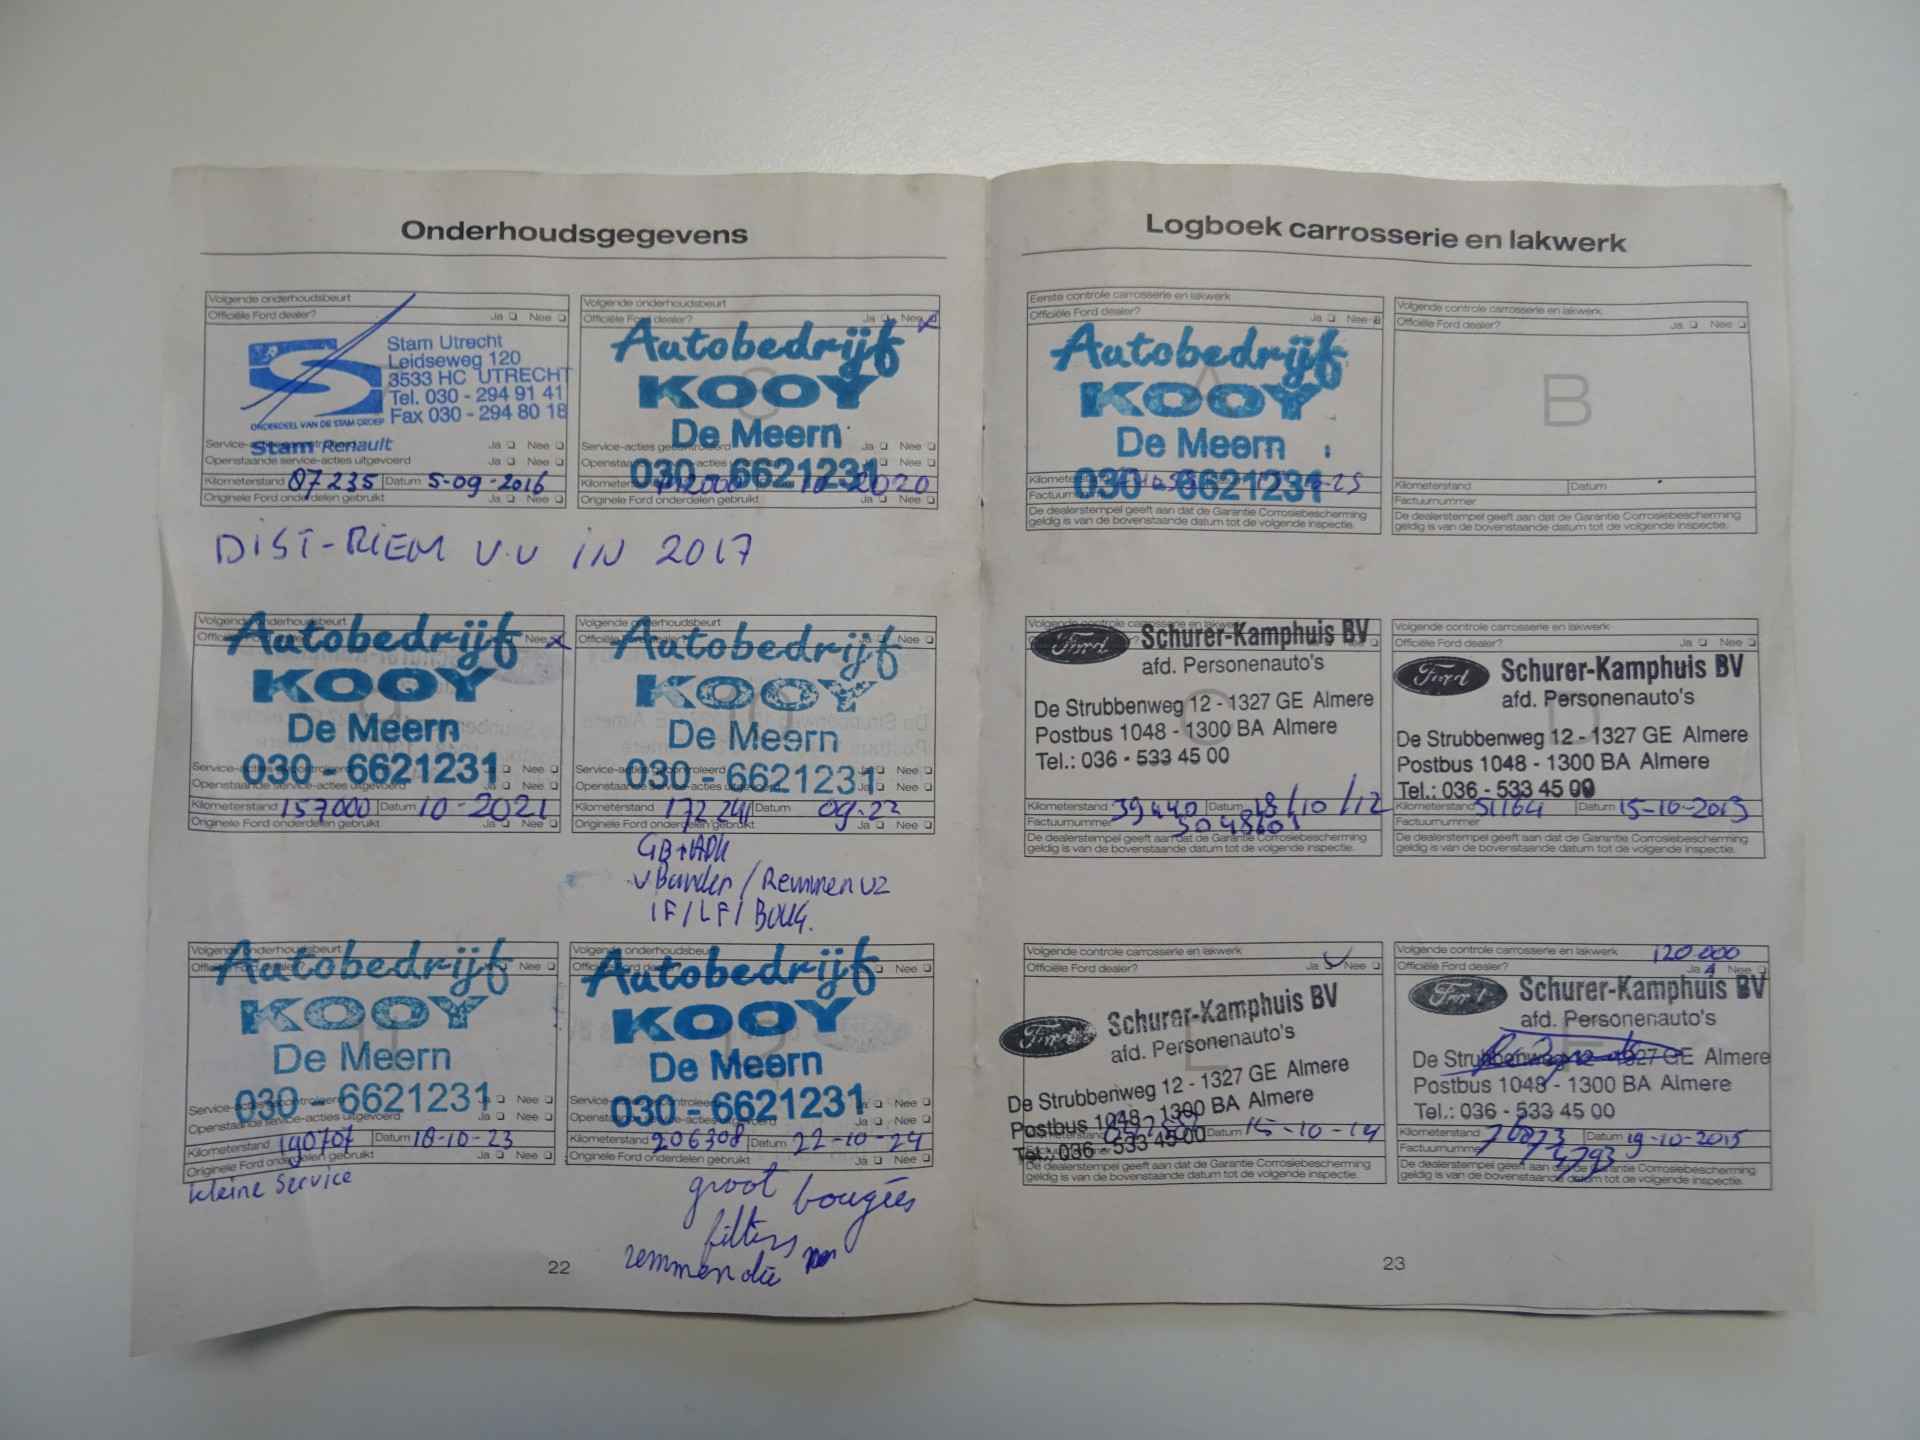 Onderhoudsgegevens
Volgende onderhoudsbeurt
Officiële Ford dealer? Ja Nee
Stam Utrecht
Leidseweg 120
3533 HC UTRECHT
Tel. 030 - 294 91 41
Fax 030 - 294 80 18
ONDERDEEL VAN DE STAM GROEP
Stam Renault
Ja Nee
Openstaande service-acties uitgevoerd Ja Nee
Kilometerstand 87235 Datum 5-09-2016
Originele Ford onderdelen gebruikt Ja Nee
DIST-RIEM V.V IN 2017
Volgende onderhoudsbeurt
Officiële Ford dealer? Ja Nee x
Autobedrijf
KOOY
De Meern
Ja Nee
Ja Nee
030 - 6621231
2020
Originele Ford onderdelen gebruikt Ja Nee
Volgende onderhoudsbeurt
Nee x
Autobedrijf
KOOY
De Meern
030 - 6621231
Service-acties gecontroleerd Ja Nee
Openstaande service-acties uitgevoerd Ja Nee
Kilometerstand 157000 Datum 10-2021
Originele Ford onderdelen gebruikt Ja Nee
Volgende onderhoudsbeurt
Officiële Ford dealer? Ja Nee
Autobedrijf
KOOY
De Meern
030 - 6621231
Service-acties gecontroleerd Ja Nee
Openstaande service-acties uitgevoerd Ja Nee
Kilometerstand 172241 Datum 09-22
Originele Ford onderdelen gebruikt Ja Nee
GB + APK
V Banden / Remmen VZ
IF / LF / BOUG.
Volgende onderhoudsbeurt
Nee
Autobedrijf
KOOY
De Meern
030 - 6621231
Service-acties gecontroleerd Ja Nee
Openstaande service-acties uitgevoerd Ja Nee
Kilometerstand 190707 Datum 18-10-23
Originele Ford onderdelen gebruikt Ja Nee
kleine Service
Volgende onderhoudsbeurt
Nee
Autobedrijf
KOOY
De Meern
030 - 6621231
Service-acties gecontroleerd Ja Nee
Openstaande service-acties uitgevoerd Ja Nee
Kilometerstand 206308 Datum 22-10-24
Originele Ford onderdelen gebruikt Ja Nee
groot bougées
filters
remmen die
22
Logboek carrosserie en lakwerk
Eerste controle carrosserie en lakwerk
Officiële Ford dealer? Ja Nee
Autobedrijf
KOOY
De Meern
030 - 6621231
De dealerstempel geeft aan dat de Garantie Corrosiebescherming
geldig is van de bovenstaande datum tot de volgende inspectie.
Volgende controle carrosserie en lakwerk
Officiële Ford dealer? Ja Nee
B
Kilometerstand Datum
Factuurnummer
De dealerstempel geeft aan dat de Garantie Corrosiebescherming
geldig is van de bovenstaande datum tot de volgende inspectie.
Volgende controle carrosserie en lakwerk
Ford Schurer-Kamphuis BV
afd. Personenauto's
C
De Strubbenweg 12 - 1327 GE Almere
Postbus 1048 - 1300 BA Almere
Tel.: 036 - 533 45 00
Kilometerstand 39440 Datum 18/10/12
Factuurnummer 5048601
De dealerstempel geeft aan dat de Garantie Corrosiebescherming
geldig is van de bovenstaande datum tot de volgende inspectie.
Volgende controle carrosserie en lakwerk
Officiële Ford dealer? Ja Nee
Ford Schurer-Kamphuis BV
afd. Personenauto's
D
De Strubbenweg 12 - 1327 GE Almere
Postbus 1048 - 1300 BA Almere
Tel.: 036 - 533 45 00
Kilometerstand 51164 Datum 15-10-2013
Factuurnummer
De dealerstempel geeft aan dat de Garantie Corrosiebescherming
geldig is van de bovenstaande datum tot de volgende inspectie.
Volgende controle carrosserie en lakwerk
Officiële Ford dealer? Ja Nee
Ford Schurer-Kamphuis BV
afd. Personenauto's
E
De Strubbenweg 12 - 1327 GE Almere
Postbus 1048 - 1300 BA Almere
Tel.: 036 - 533 45 00
Datum 15-10-14
De dealerstempel geeft aan dat de Garantie Corrosiebescherming
geldig is van de bovenstaande datum tot de volgende inspectie.
Volgende controle carrosserie en lakwerk 120.000
Officiële Ford dealer? Ja Nee
Ford Schurer-Kamphuis BV
afd. Personenauto's
F
De Strubbenweg 12 - 1327 GE Almere
Postbus 1048 - 1300 BA Almere
Tel.: 036 - 533 45 00
Kilometerstand Datum 19-10-2015
Factuurnummer
De dealerstempel geeft aan dat de Garantie Corrosiebescherming
geldig is van de bovenstaande datum tot de volgende inspectie.
23